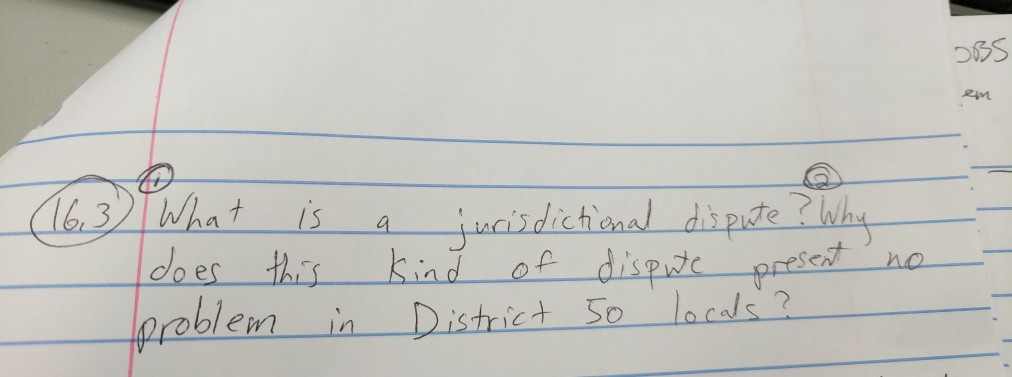 OBS
em
① ②
16.3 What is a jurisdictional dispute? Why
does this kind of dispute present no
problem in District 50 locals?